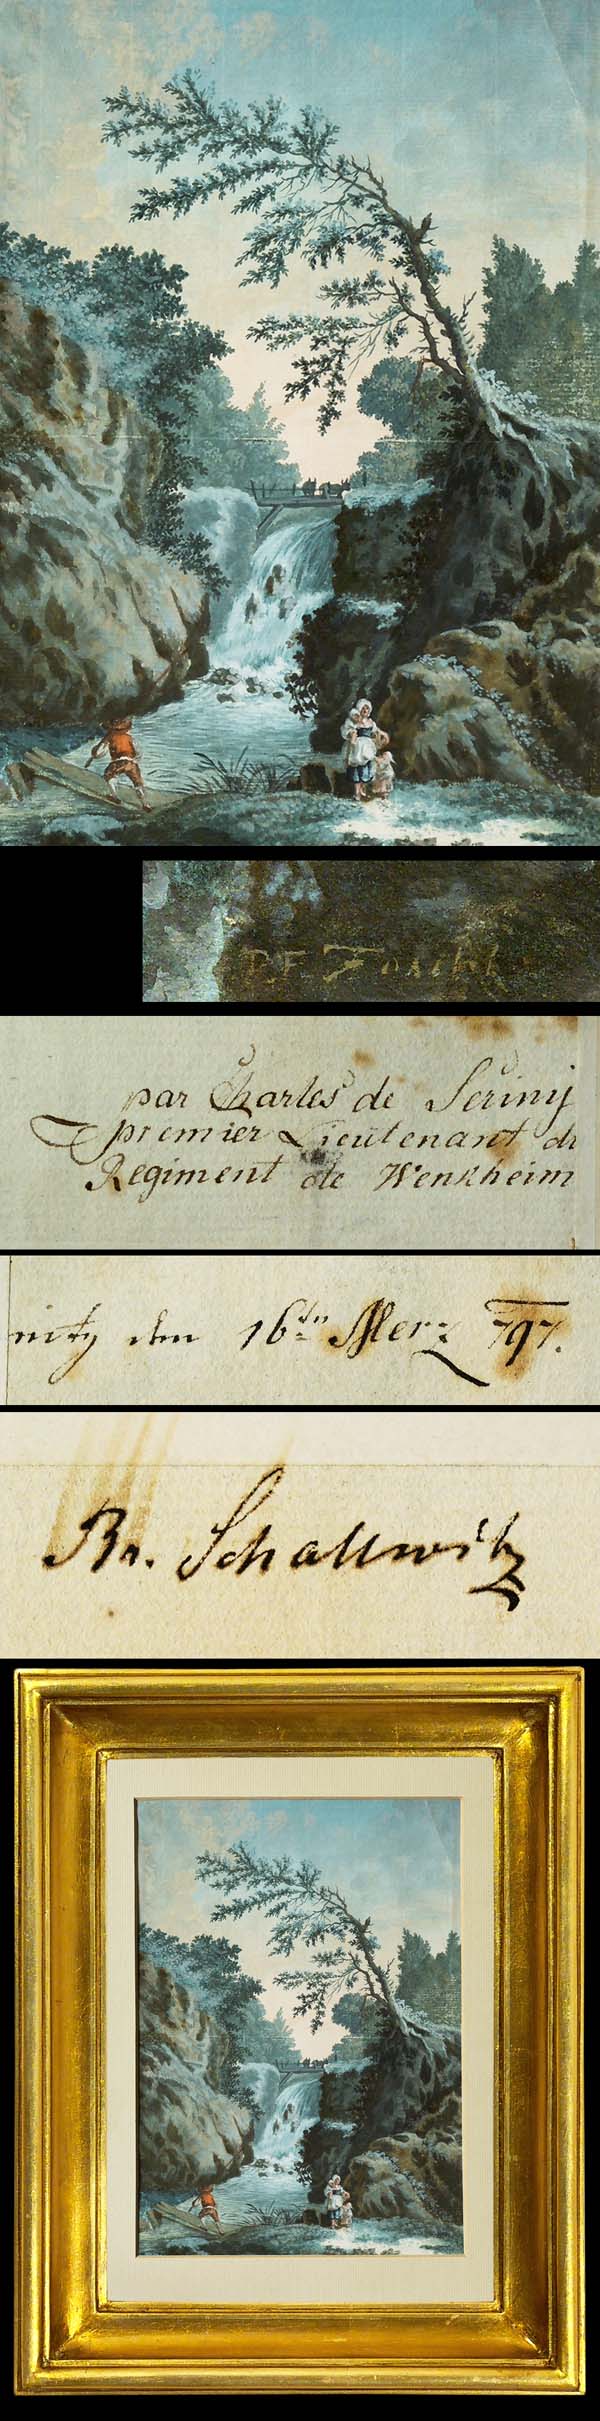 P.F. Foschi
par Charles de Seriny
premier Lieutenant de
Regiment de Wenkheim
nitz den 16ten Merz 797.
Br. Schallwitz